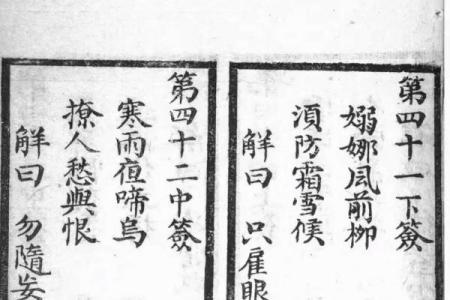 第四十一下簽
嫋娜風前柳
湏防霜雪候
解曰 只雇眼
第四十二中簽
寒雨夜啼烏
撩人愁與恨
解曰 勿隨妄